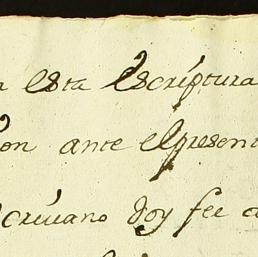 esta Escriptura
on ante el presen
scriuano doy fee